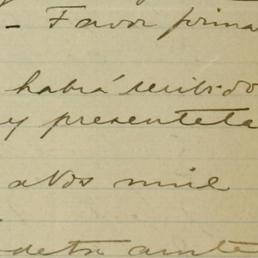 - Favor firma
habrá recibido
y presentela
a Vos mil